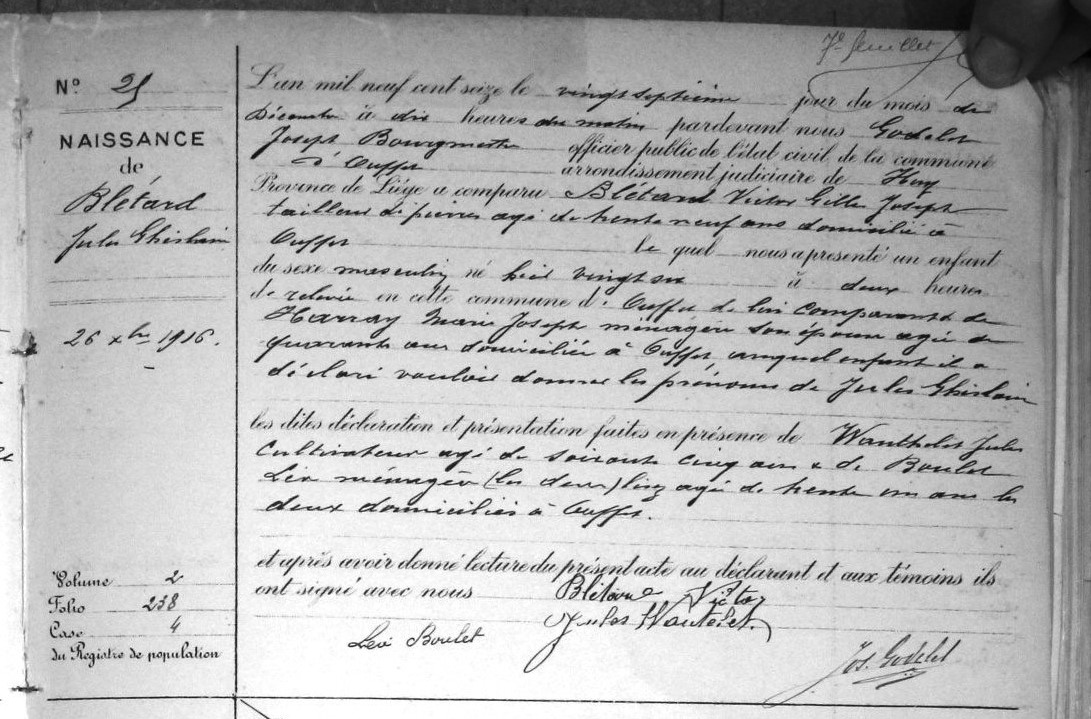 7e feuillet
No 25
NAISSANCE
de
Blétard
Jules Ghislain
26 xbre 1916.
Volume 2
Folio 238
Case 4
du Registre de population
L'an mil neuf cent seize le vingt septième jour du mois de
Décembre à dix heures du matin pardevant nous Godelet
Joseph Bourgmestre officier public de l'état civil de la commune
d'Ouffet arrondissement judiciaire de Huy
Province de Liége a comparu Blétard Victor Gilles Joseph
tailleur de pierres agé de trente neuf ans domicilié à
Ouffet le quel nous a présenté un enfant
du sexe masculin né hier vingt six à deux heures
de relevée en cette commune d'Ouffet de lui comparant & de
Harray Marie Joseph ménagère son épouse agée de
quarante ans domiciliée à Ouffet auquel enfant il a
déclaré vouloir donner les prénoms de Jules Ghislain
les dites déclaration et présentation faites en présence de Wauthelet Jules
cultivateur agé de soixante cinq ans & de Boulet
Léa ménagère (les deux) agé de trente un ans les
deux domiciliés à Ouffet.
et après avoir donné lecture du présent acte au déclarant et aux témoins ils
ont signé avec nous Blétard Victor
Jules Wautelet
Léa Boulet
Jos. Godelet